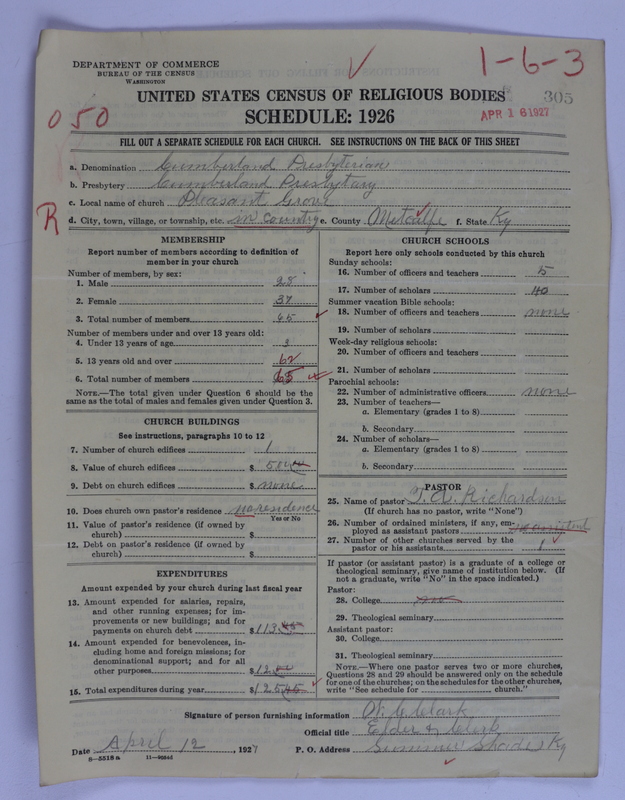 DEPARTMENT OF COMMERCE
BUREAU OF THE CENSUS
WASHINGTON
1-6-3
UNITED STATES CENSUS OF RELIGIOUS BODIES
305
SCHEDULE: 1926
APR 16 1927
050
FILL OUT A SEPARATE SCHEDULE FOR EACH CHURCH. SEE INSTRUCTIONS ON THE BACK OF THIS SHEET
a. Denomination Cumberland Presbyterian
b. Presbytery Cumberland Presbytary
c. Local name of church Pleasant Grove
R
d. City, town, village, or township, etc. in Country e. County Metcalfe f. State Ky
MEMBERSHIP
Report number of members according to definition of
member in your church
Number of members, by sex:
1. Male 28
2. Female 37
3. Total number of members 65
Number of members under and over 13 years old:
4. Under 13 years of age 3
5. 13 years old and over 62
6. Total number of members 65
NOTE.—The total given under Question 6 should be the
same as the total of males and females given under Question 3.
CHURCH BUILDINGS
See instructions, paragraphs 10 to 12
7. Number of church edifices 1
8. Value of church edifices $
9. Debt on church edifices $ none
10. Does church own pastor's residence no residence
Yes or No
11. Value of pastor's residence (if owned by
church) $
12. Debt on pastor's residence (if owned by
church) $
EXPENDITURES
Amount expended by your church during last fiscal year
13. Amount expended for salaries, repairs,
and other running expenses; for im-
provements or new buildings; and for
payments on church debt $113
14. Amount expended for benevolences, in-
cluding home and foreign missions; for
denominational support; and for all
other purposes $12
15. Total expenditures during year $125.45
CHURCH SCHOOLS
Report here only schools conducted by this church
Sunday schools:
16. Number of officers and teachers 5
17. Number of scholars 40
Summer vacation Bible schools:
18. Number of officers and teachers none
19. Number of scholars
Week-day religious schools:
20. Number of officers and teachers
21. Number of scholars
Parochial schools:
22. Number of administrative officers none
23. Number of teachers—
a. Elementary (grades 1 to 8)
b. Secondary
24. Number of scholars—
a. Elementary (grades 1 to 8)
b. Secondary
PASTOR
25. Name of pastor Richardson
(If church has no pastor, write "None")
26. Number of ordained ministers, if any, em-
ployed as assistant pastors no assistant
27. Number of other churches served by the
pastor or his assistants 1
If pastor (or assistant pastor) is a graduate of a college or
theological seminary, give name of institution below. (If
not a graduate, write "No" in the space indicated.)
Pastor:
28. College
29. Theological seminary
Assistant pastor:
30. College
31. Theological seminary
NOTE.—Where one pastor serves two or more churches,
Questions 28 and 29 should be answered only on the schedule
for one of the churches; on the schedules for the other churches,
write "See schedule for church."
Signature of person furnishing information W. C. Clark
Official title Elder & Clerk
Date April 12, 1927 P. O. Address Summer Shade Ky
8-5518 a